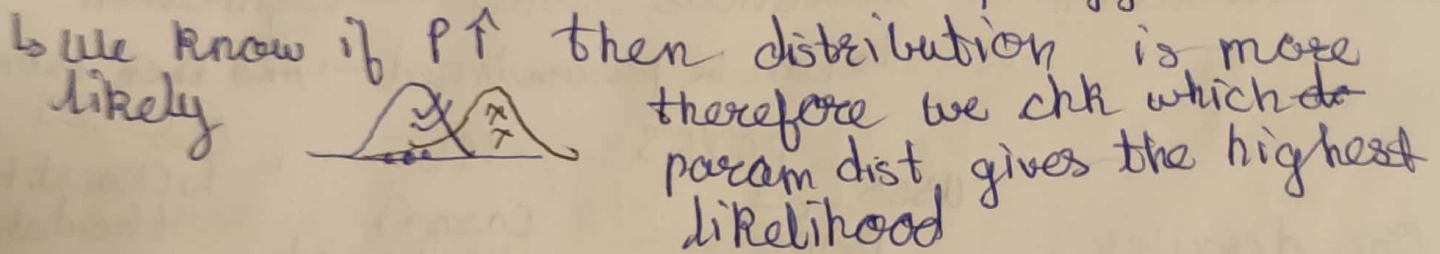 ↳ We know if P↑ then distribution is more
likely
therefore we chk which
param dist. gives the highest
likelihood